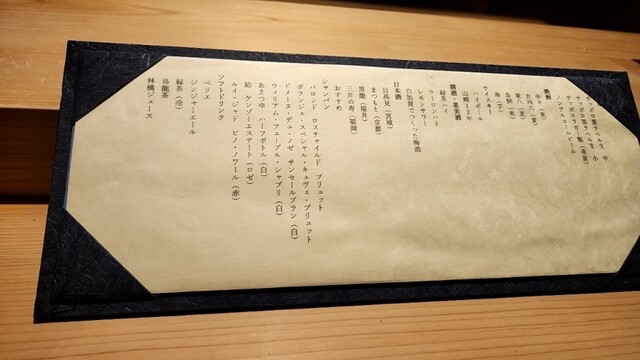 サッポロ黒ラベル生 中
サッポロ黒ラベル生 小
サッポロラガー 瓶（赤星）
ノンアルコールビール
焼酎
中々（麦）
吉四六（麦）
兼八（麦）
鳥飼（米）
海（芋）
ウイスキー
ハイボール
山崎12年
緑茶ハイ
ウーロンハイ
レモンサワー
白加賀でつくった梅酒
日本酒
日高見（宮城）
まつもと（京都）
黒龍（福井）
三井の寿（福岡）
おすすめ
シャンパン
バロンド ロスチャイルド ブリュット
ボランジェ・スペシャル・キュヴェ・ブリュット
ドメーヌ・デュ・ノゼ サンセールブラン（白）
ウィリアム・フェーブル・シャブリ（白）
あさつゆ ハーフボトル（白）
結 ケンゾーエステート（ロゼ）
ルイ・ジャド ピノ・ノワール（赤）
ソフトドリンク
ペリエ
ジンジャーエール
緑茶（冷）
烏龍茶
林檎ジュース